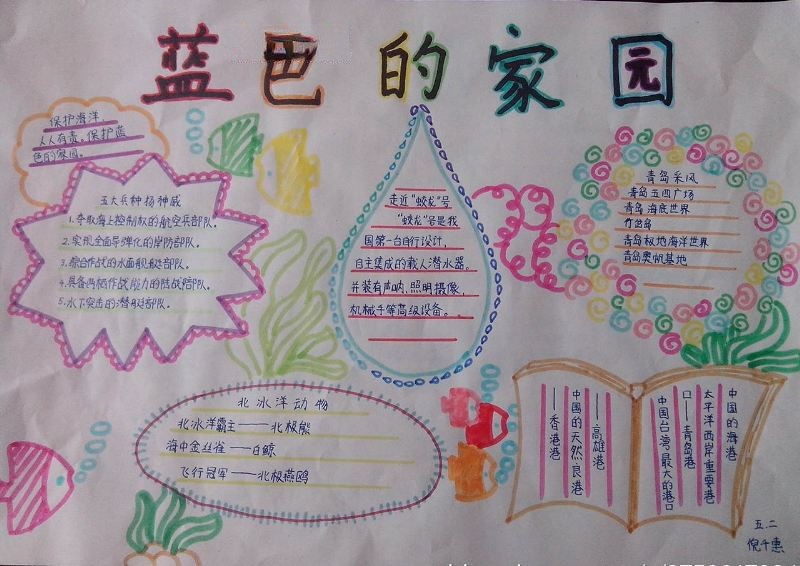 蓝色的家园
保护海洋，
人人有责。保护蓝
色的家园。
五大兵种扬神威
1.夺取海上控制权的航空兵部队。
2.实现全面导弹化的岸防部队。
3.综合作战的水面舰艇部队。
4.具备两栖作战能力的陆战部队。
5.水下突击的潜艇部队。
走近“蛟龙”号
“蛟龙”号是我
国第一台自行设计，
自主集成的载人潜水器。
并装有声呐、照明摄像、
机械手等高级设备。
青岛采风
青岛五四广场
青岛海底世界
竹岔岛
青岛极地海洋世界
青岛奥帆基地
北冰洋动物
北冰洋霸主——北极熊
海中金丝雀——白鲸
飞行冠军——北极燕鸥
中国的海港
太平洋西岸重要港
口——青岛港
中国台湾最大的港口
——高雄港
中国的天然良港
——香港港
五.二
倪千惠